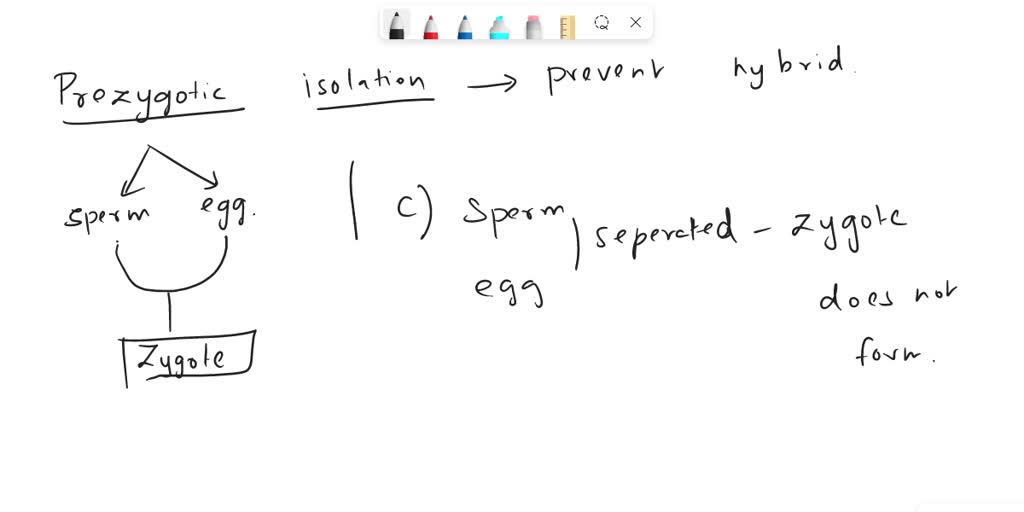 Prezygotic isolation → prevent hybrid.
sperm egg.
Zygote
c) Sperm
egg
seperated - zygote
does not
form.